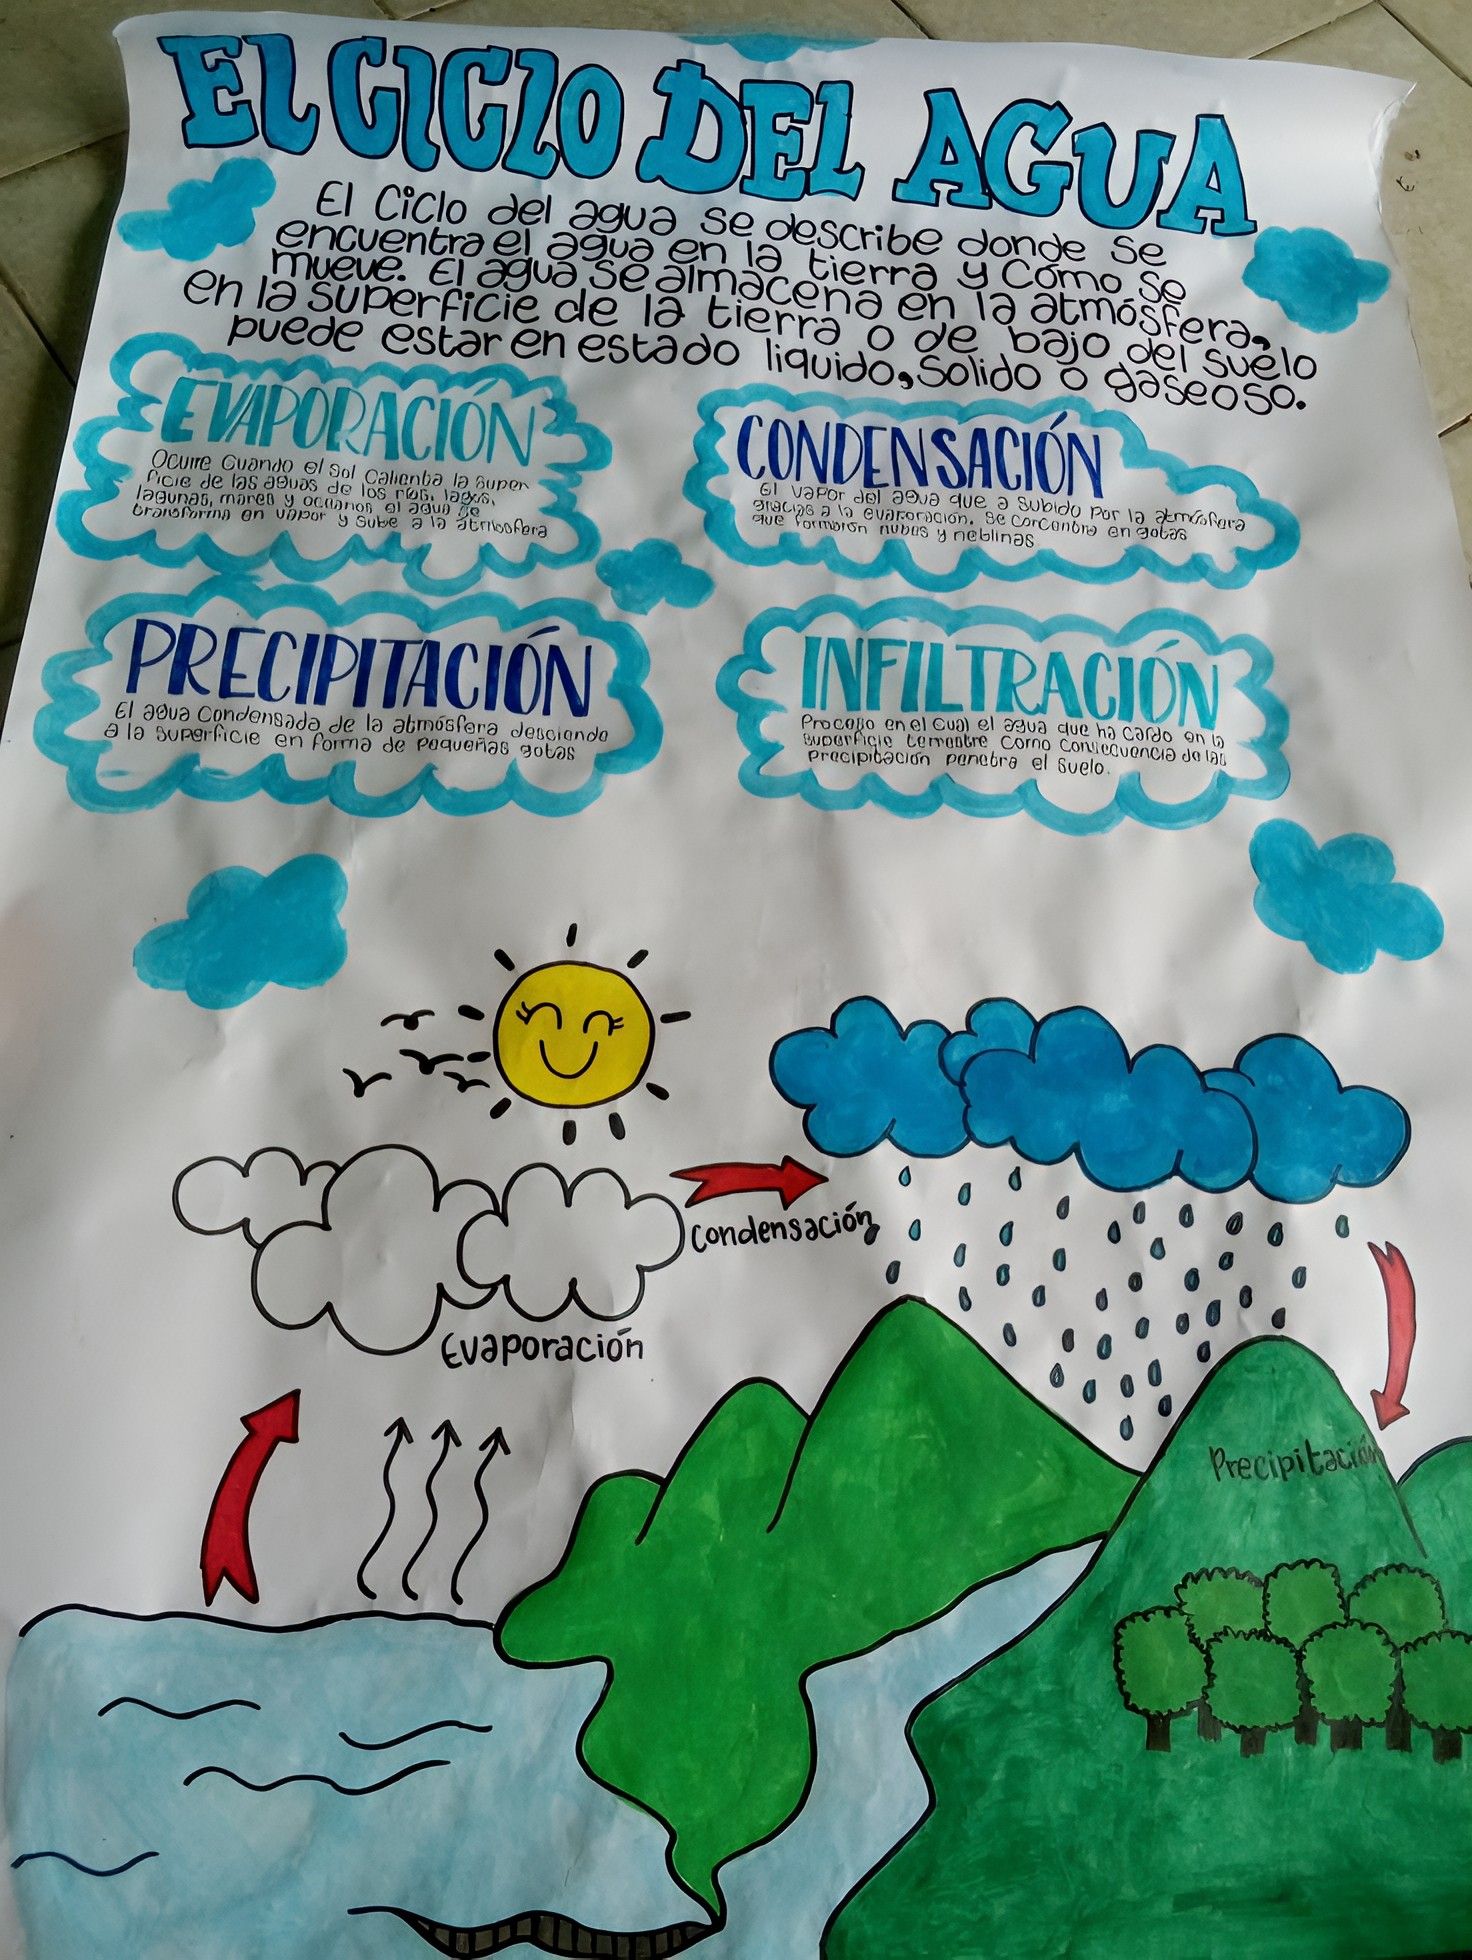 El CICLO DEL AGUA
El Ciclo del agua se describe donde se
encuentra el agua en la tierra y Cómo se
mueve. El agua se almacena en la atmósfera,
en la superficie de la tierra o de bajo del suelo
puede estar en estado liquido, Solido o gaseoso.
EVAPORACIÓN
Ocurre Cuando el Sol Calienta la super
ficie de las aguas de los ríos, lagos,
lagunas, mares y océanos el agua se
transforma en vapor y sube a la atmosfera
CONDENSACIÓN
El vapor del agua que a subido por la atmósfera
gracias a la evaporación. se concentra en gotas
que formarón nubes y neblinas
PRECIPITACIÓN
El agua Condensada de la atmósfera desciende
a la superficie en forma de pequeñas gotas
INFILTRACIÓN
Proceso en el Cual el agua que ha caido en la
superficie terrestre como Consecuencia de las
Precipitación penetra el suelo.
Condensación
Evaporación
Precipitación